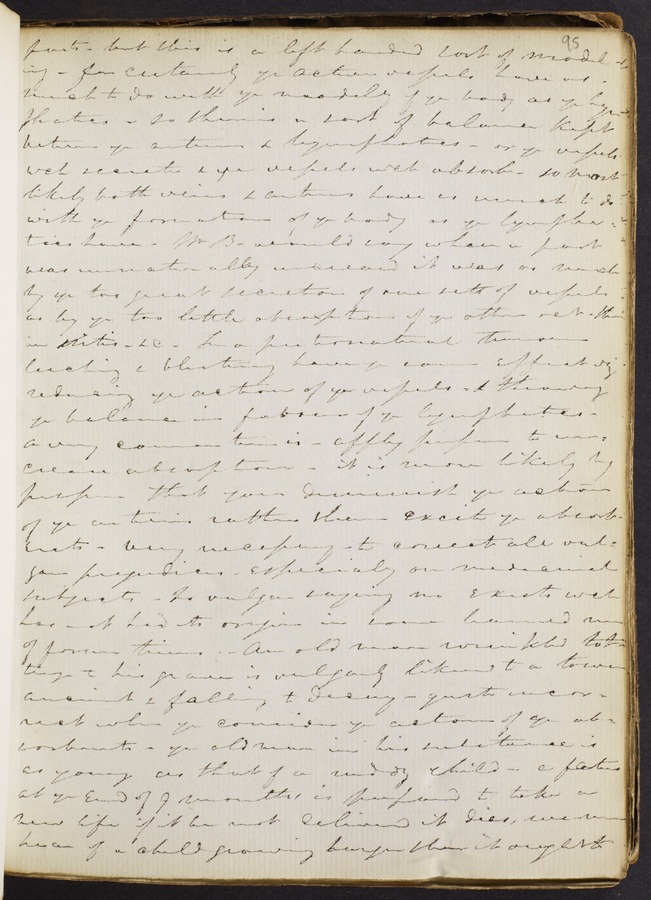 95
parts - but this is a left handed sort of model-
ing - for certainly ye active vessels have as
much to do with ye modeling of ye body as ye lym-
phatics - so there is a sort of balance kept
between ye arteries & lymphatics - or ye vessels
wch secrete & ye vessels wch absorb - so most
likely both veins & arteries have as much to do
with ye formation of ye body as ye lympha-
tics have - Mr B. would say when a part
was unnaturally increased it was as much
by ye too great secretion of one sett of vessels
as by ye too little absorption of ye other sett - thus
in &c - In a preternatural tumour
leeching & blistering have ye same effect viz
reducing ye action of ye vessels - & throwing
ye balance in favour of ye lymphatics -
a very common term is - apply pressure to in-
crease absorption - it is more likely by
pressure that you diminish ye action
of ye arteries rather than excite ye absorb-
ents - very necessary to correct all vul-
gar prejudices - especially on medicinal
subjects - no vulgar saying now exists wch
has not had its origin in some learned man
of former times - An old man wrinkled tot-
tering to his grave is vulgarly likened to a tower
ancient & falling to decay - quite incor-
rect when ye consider ye action of ye ab-
sorbents - ye old man in his substance is
as young as that of a ruddy child - a foetus
at ye End of 9 months is prepared to take a
new life if it be not delivered it dies, we never
hear of a child growing larger than it ought to